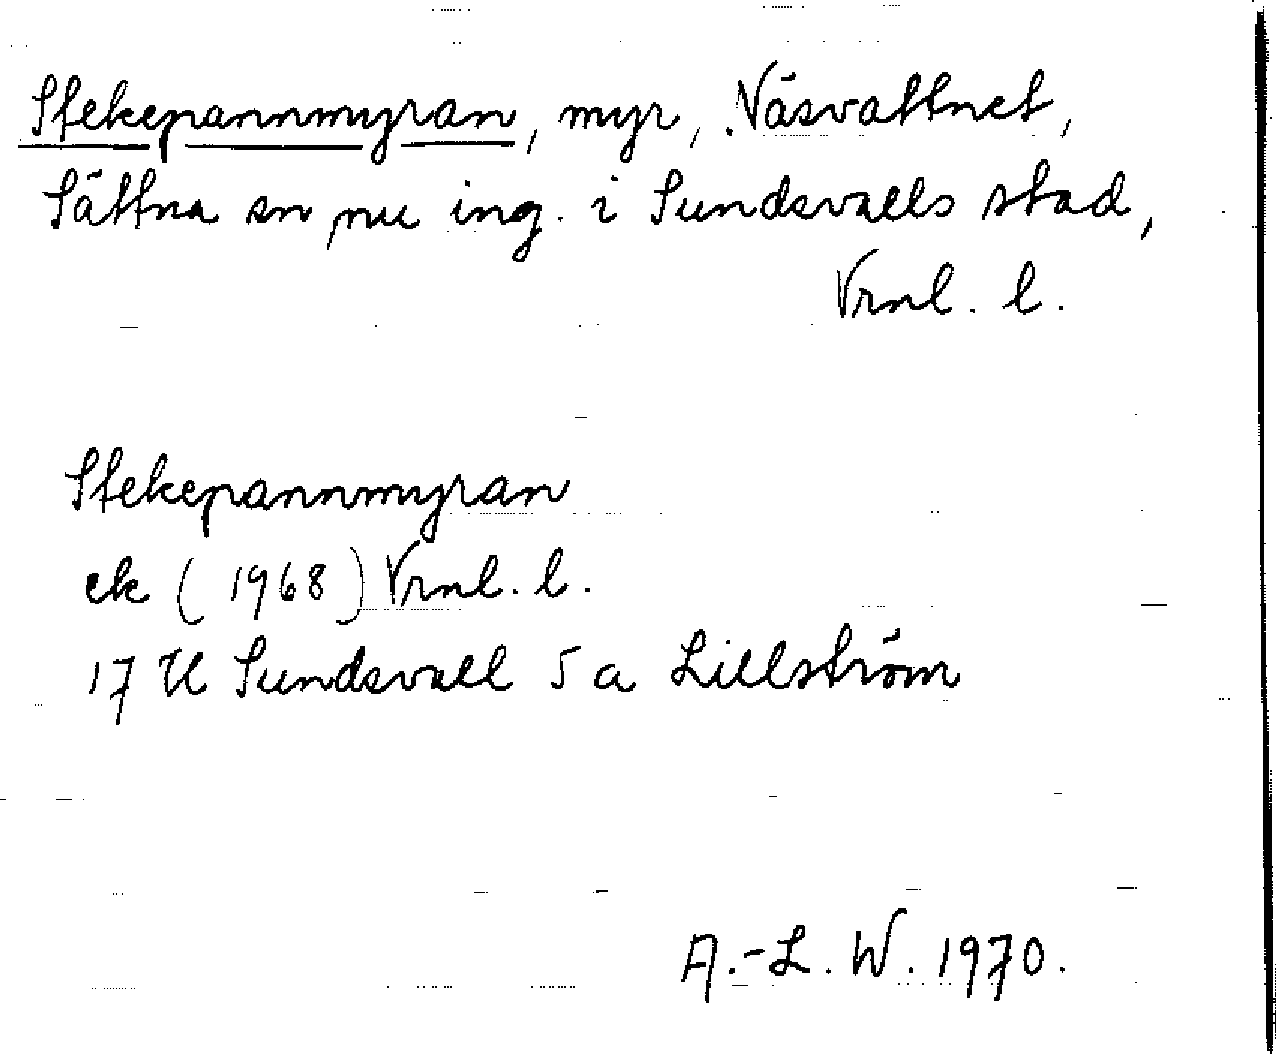 Stekepannmyran, myr, Väsvattnet,
Sättna sn, nu ing. i Sundsvalls stad,
Vrnl. l.
Stekepannmyran
ek (1968) Vrnl. l.
17 H Sundsvall 5 a Lillström
A.-L. W. 1970.